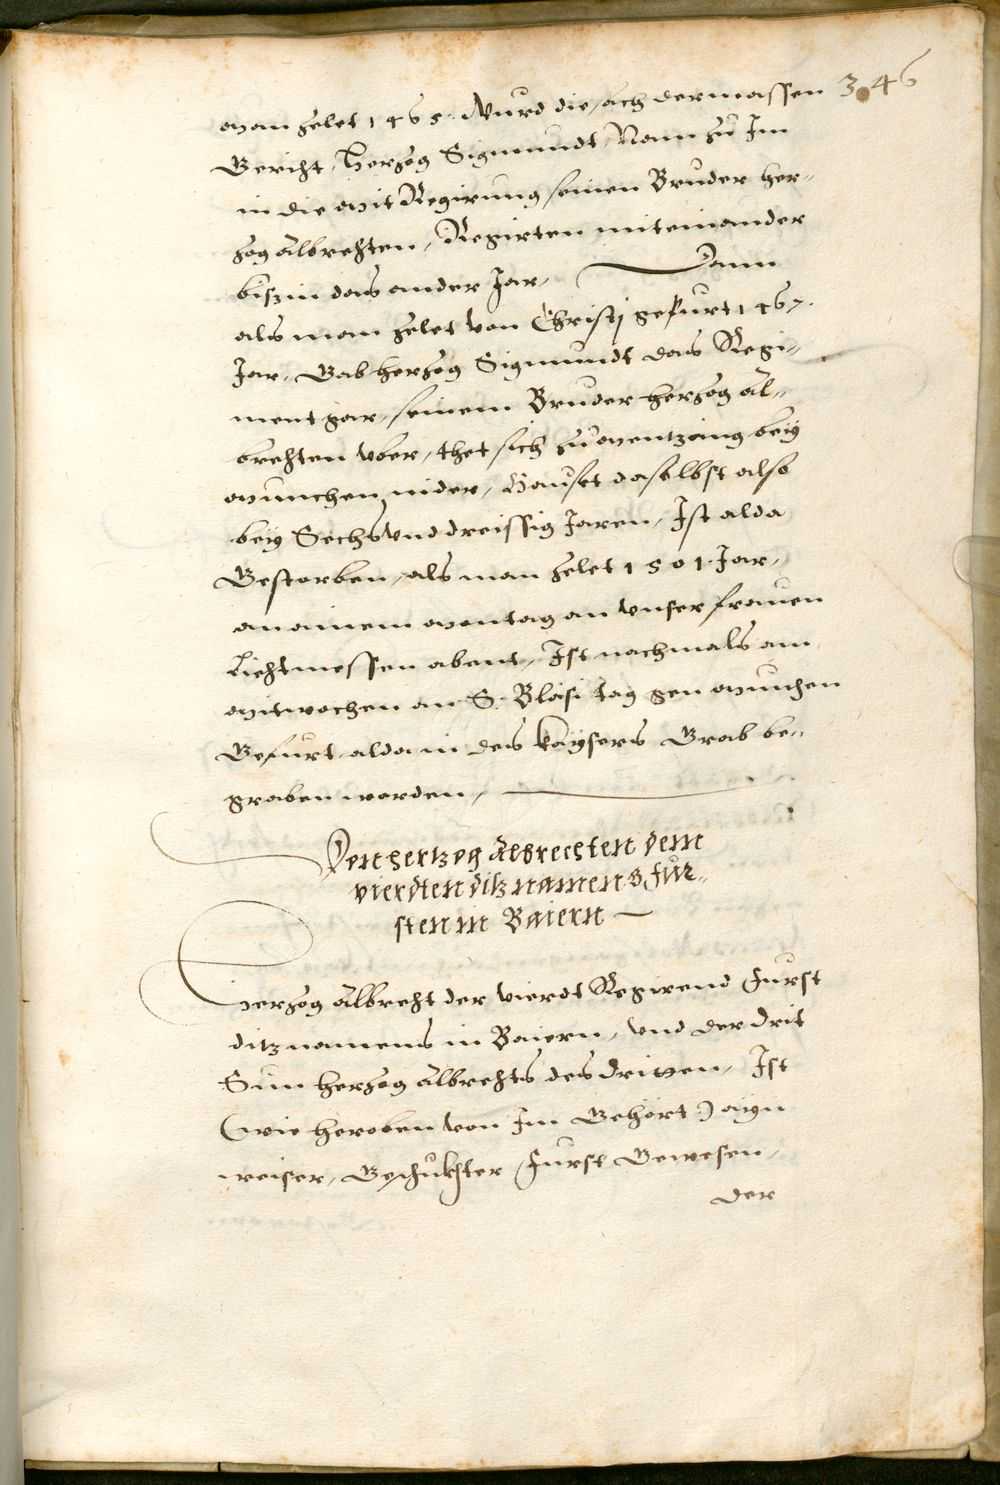 346
man zelet 1465. Wurd die sach dermassen
Bericht, Herzog Sigmundt, Nam zu Im
in die mit Regirung seinen Bruder her„
zog Albrechten, Regirten miteinander
bisz in das ander Jar, Dann
als man zelet von Christj gepurt 1467.
Jar, Gab herzog Sigmundt das Regi„
ment gar, seinem Bruder herzog Al„
brechten vber, thet sich zu mentzing beij
munchen nider, Hauset daselbst also
beij Sechs vnd dreissig Jaren, Ist alda
Gestorben, als man zelet 1501. Jar,
an ainem montag an vnser frauen
Liechtmessen abent, Ist nachmals am
mitwochen an S. Blasi tag gen munchen
Gefurt, alda in des kaysers Grab be„
graben worden,
Von hertzog Albrechten dem
vierdten ditz namens Fur„
sten in Baiern
Herzog Albrecht der vierdt Regirend Furst
ditz namens in Baiern, vnd der drit
Sun herzog Albrechts des dritten, Ist
(wie heroben von Im Gehört) ayn
weiser, Geschickter Furst Gewesen,
der